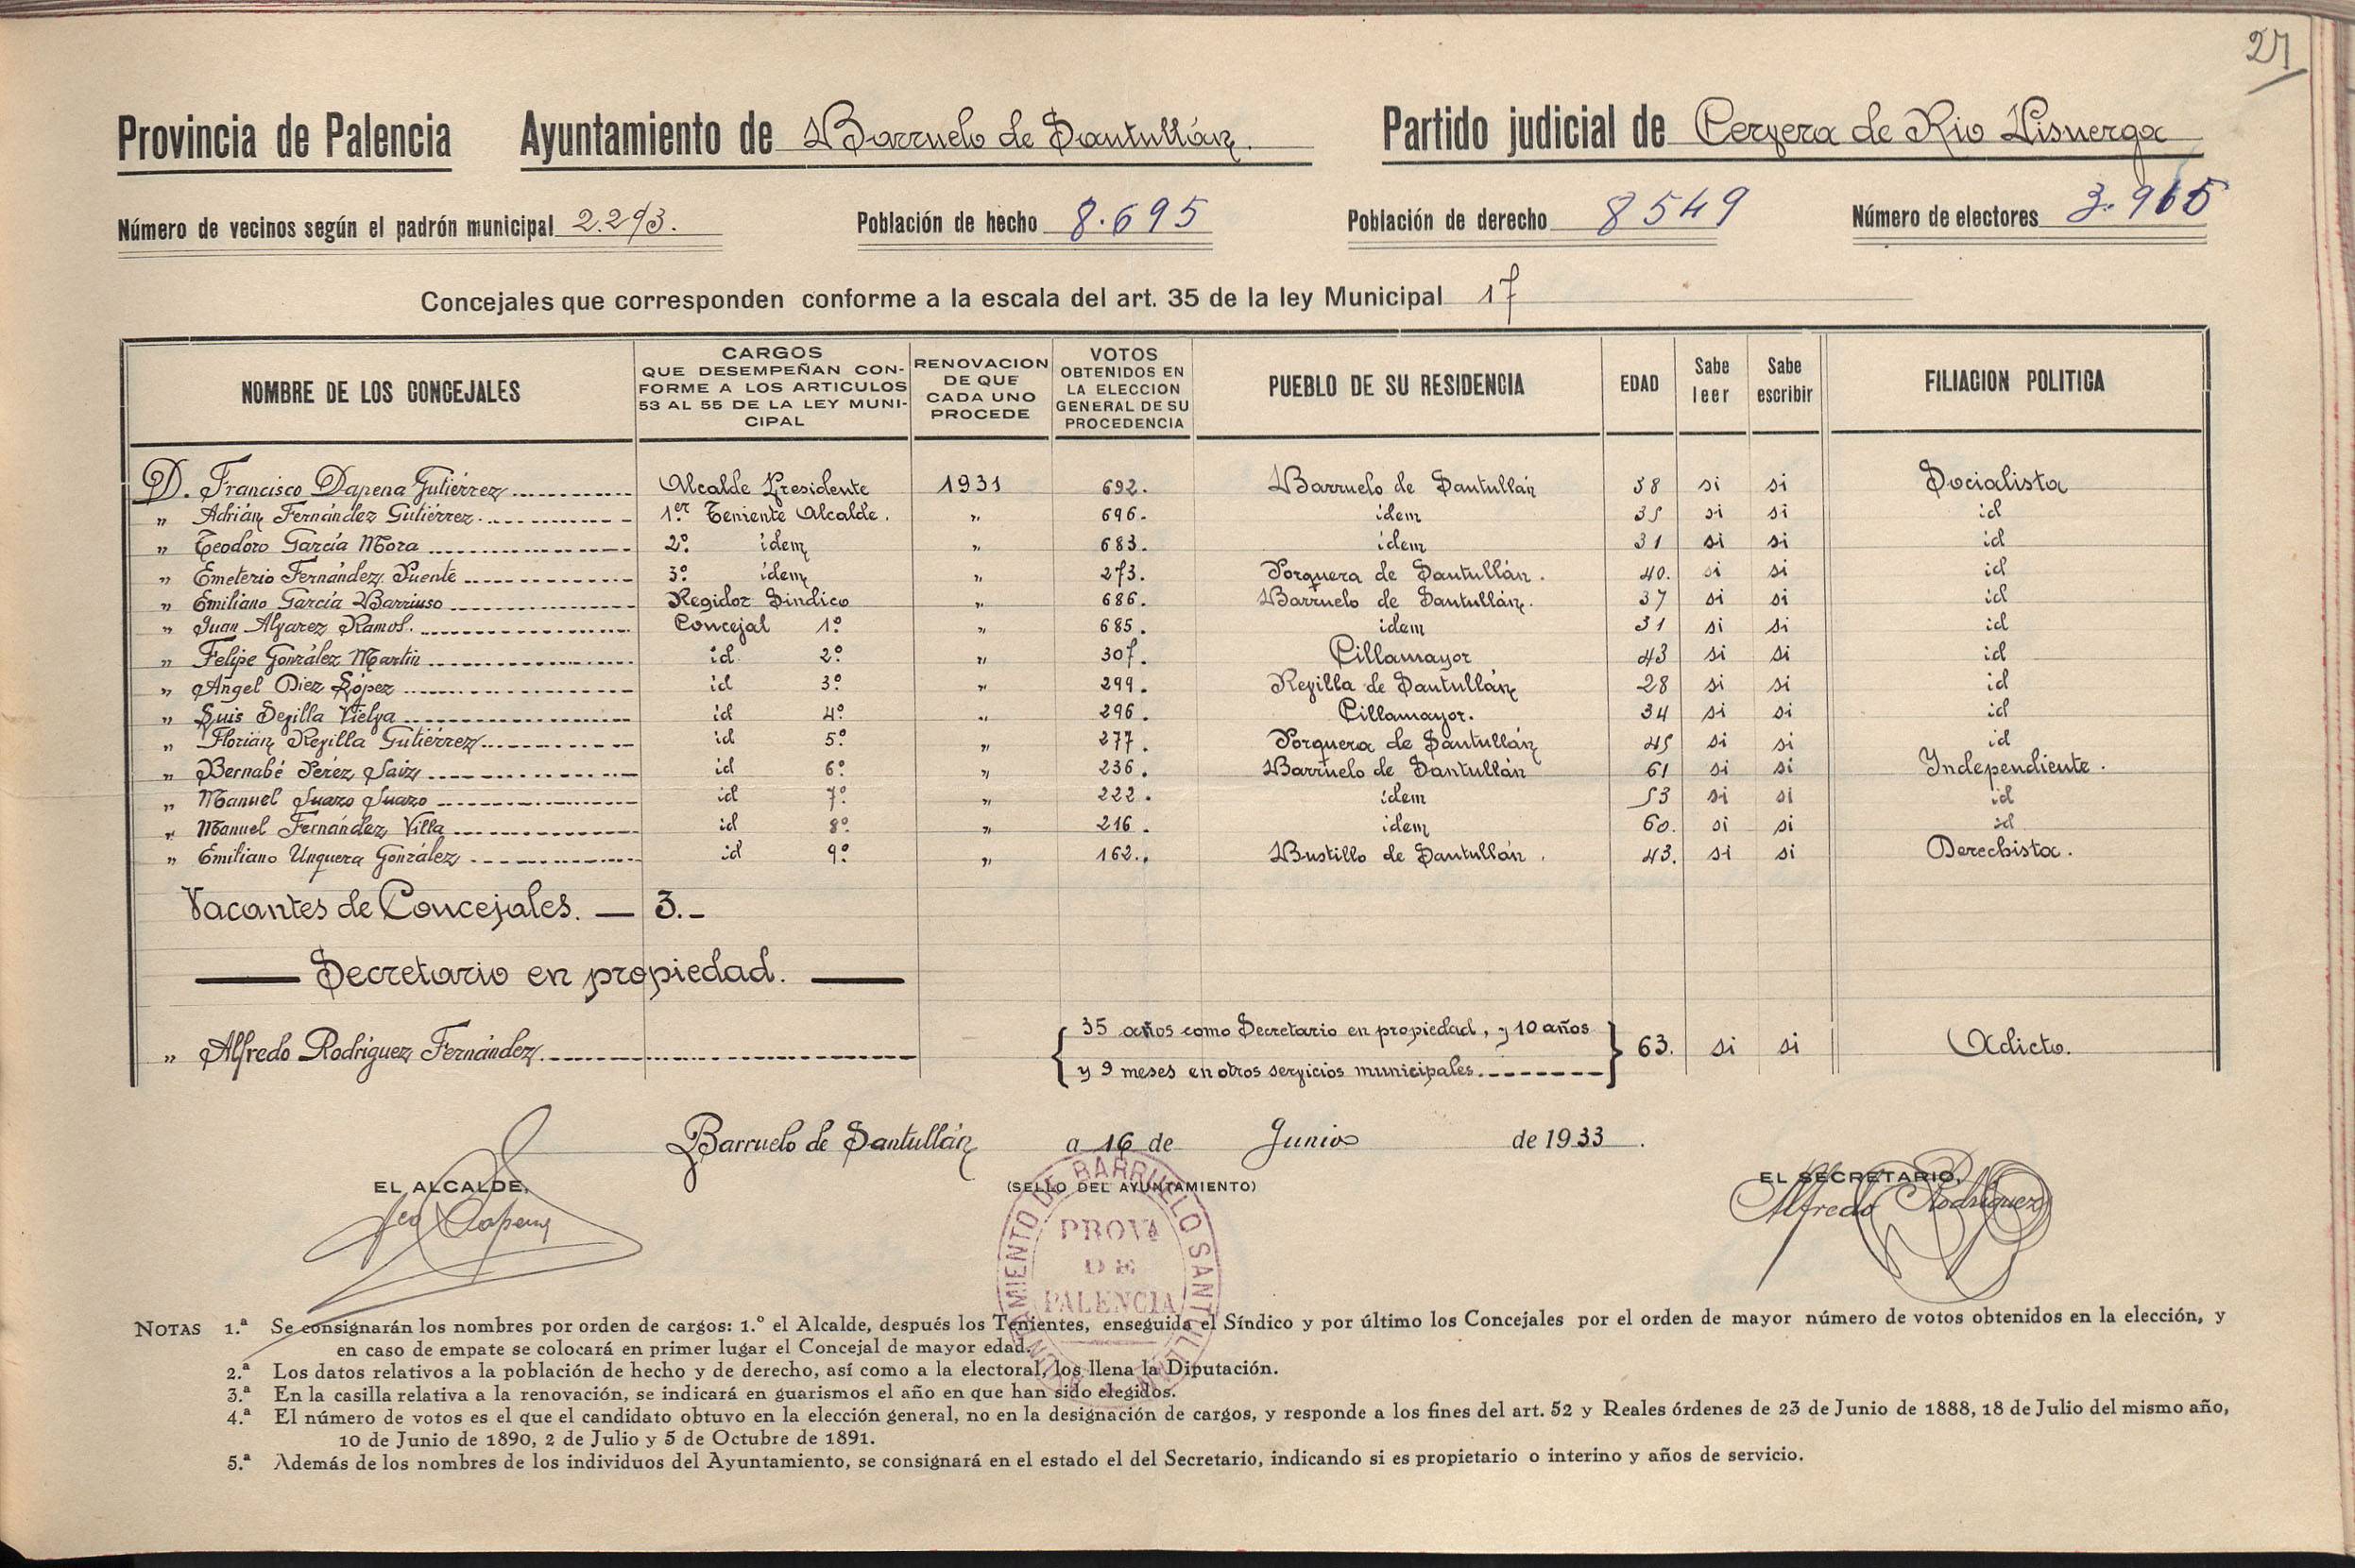 27
Provincia de Palencia Ayuntamiento de Barruelo de Santullán. Partido judicial de Cervera de Rio Pisuerga
Número de vecinos según el padrón municipal 2.293. Población de hecho 8.695 Población de derecho 8549 Número de electores 3.965
Concejales que corresponden conforme a la escala del art. 35 de la ley Municipal 17
NOMBRE DE LOS CONCEJALES
CARGOS
QUE DESEMPEÑAN CON-
FORME A LOS ARTICULOS
53 AL 55 DE LA LEY MUNI-
CIPAL
RENOVACION
DE QUE
CADA UNO
PROCEDE
VOTOS
OBTENIDOS EN
LA ELECCION
GENERAL DE SU
PROCEDENCIA
PUEBLO DE SU RESIDENCIA
EDAD
Sabe
leer
Sabe
escribir
FILIACION POLITICA
D. Francisco Dapena Gutiérrez Alcalde Presidente 1931 692. Barruelo de Santullán 38 si si Socialista
" Adrián Fernández Gutiérrez 1.er Teniente Alcalde. " 696. idem 35 si si id
" Teodoro García Mora 2º idem " 683. idem 31 si si id
" Emeterio Fernández Puente 3º idem " 273. Porquera de Santullán. 40. si si id
" Emiliano García Barriuso Regidor Sindico " 686. Barruelo de Santullán. 37 si si id
" Juan Alvarez Ramos. Concejal 1º " 685. idem 31 si si id
" Felipe González Martín id. 2º " 307. Cillamayor 43 si si id
" Angel Diez López id 3º " 299. Revilla de Santullán 28 si si id
" Luis Sevilla Vielva id 4º " 296. Cillamayor. 34 si si id
" Florián Revilla Gutiérrez id 5º " 277. Porquera de Santullán 45 si si id
" Bernabé Peréz Saiz id 6º " 236. Barruelo de Santullán 61 si si Independiente.
" Manuel Suazo Suazo id 7º " 222. idem 53 si si id
" Manuel Fernández Villa id 8º " 216. idem 60. si si id
" Emiliano Unquera González id 9º " 162. Bustillo de Santullán. 43. si si Derechista.
Vacantes de Concejales. — 3.-
— Secretario en propiedad. —
" Alfredo Rodríguez Fernández { 35 años como Secretario en propiedad, y 10 años
y 9 meses en otros servicios municipales. } 63. si si Adicto.
Barruelo de Santullán a 16 de Junio de 1933.
EL ALCALDE, (SELLO DEL AYUNTAMIENTO) EL SECRETARIO,
Fco Dapena
Alfredo Rodríguez
AYUNTAMIENTO DE BARRUELO SANTULLAN
PROVA
DE
PALENCIA
NOTAS 1.ª Se consignarán los nombres por orden de cargos: 1.º el Alcalde, después los Tenientes, enseguida el Síndico y por último los Concejales por el orden de mayor número de votos obtenidos en la elección, y
en caso de empate se colocará en primer lugar el Concejal de mayor edad.
2.ª Los datos relativos a la población de hecho y de derecho, así como a la electoral, los llena la Diputación.
3.ª En la casilla relativa a la renovación, se indicará en guarismos el año en que han sido elegidos.
4.ª El número de votos es el que el candidato obtuvo en la elección general, no en la designación de cargos, y responde a los fines del art. 52 y Reales órdenes de 23 de Junio de 1888, 18 de Julio del mismo año,
10 de Junio de 1890, 2 de Julio y 5 de Octubre de 1891.
5.ª Además de los nombres de los individuos del Ayuntamiento, se consignará en el estado el del Secretario, indicando si es propietario o interino y años de servicio.